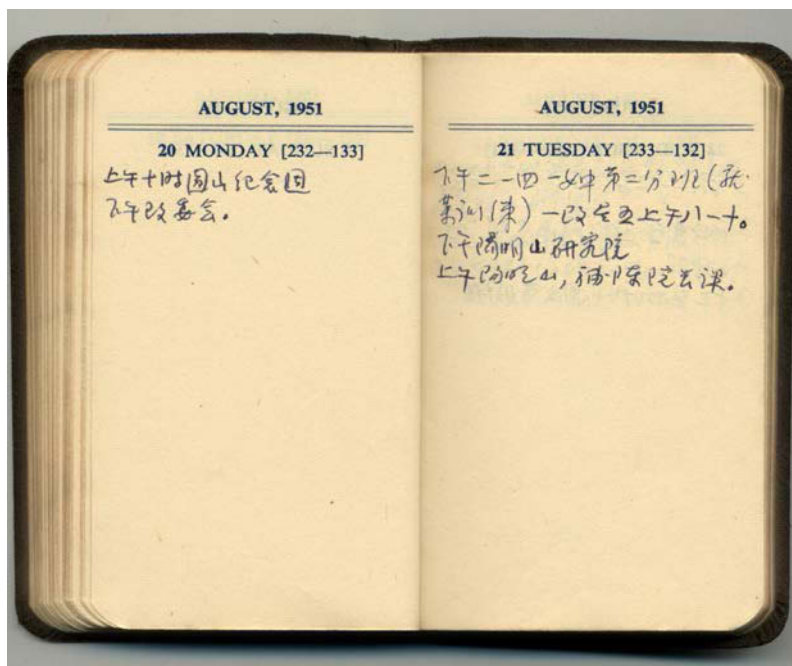 AUGUST, 1951
20 MONDAY [232—133]
上午十时圆山纪念週
下午改委会。
AUGUST, 1951
21 TUESDAY [233—132]
下午二—四一女中第二分班(就
业训(东)—改在五上午八—十。
下午陽明山研究院
上午陽明山,補陈院长课。